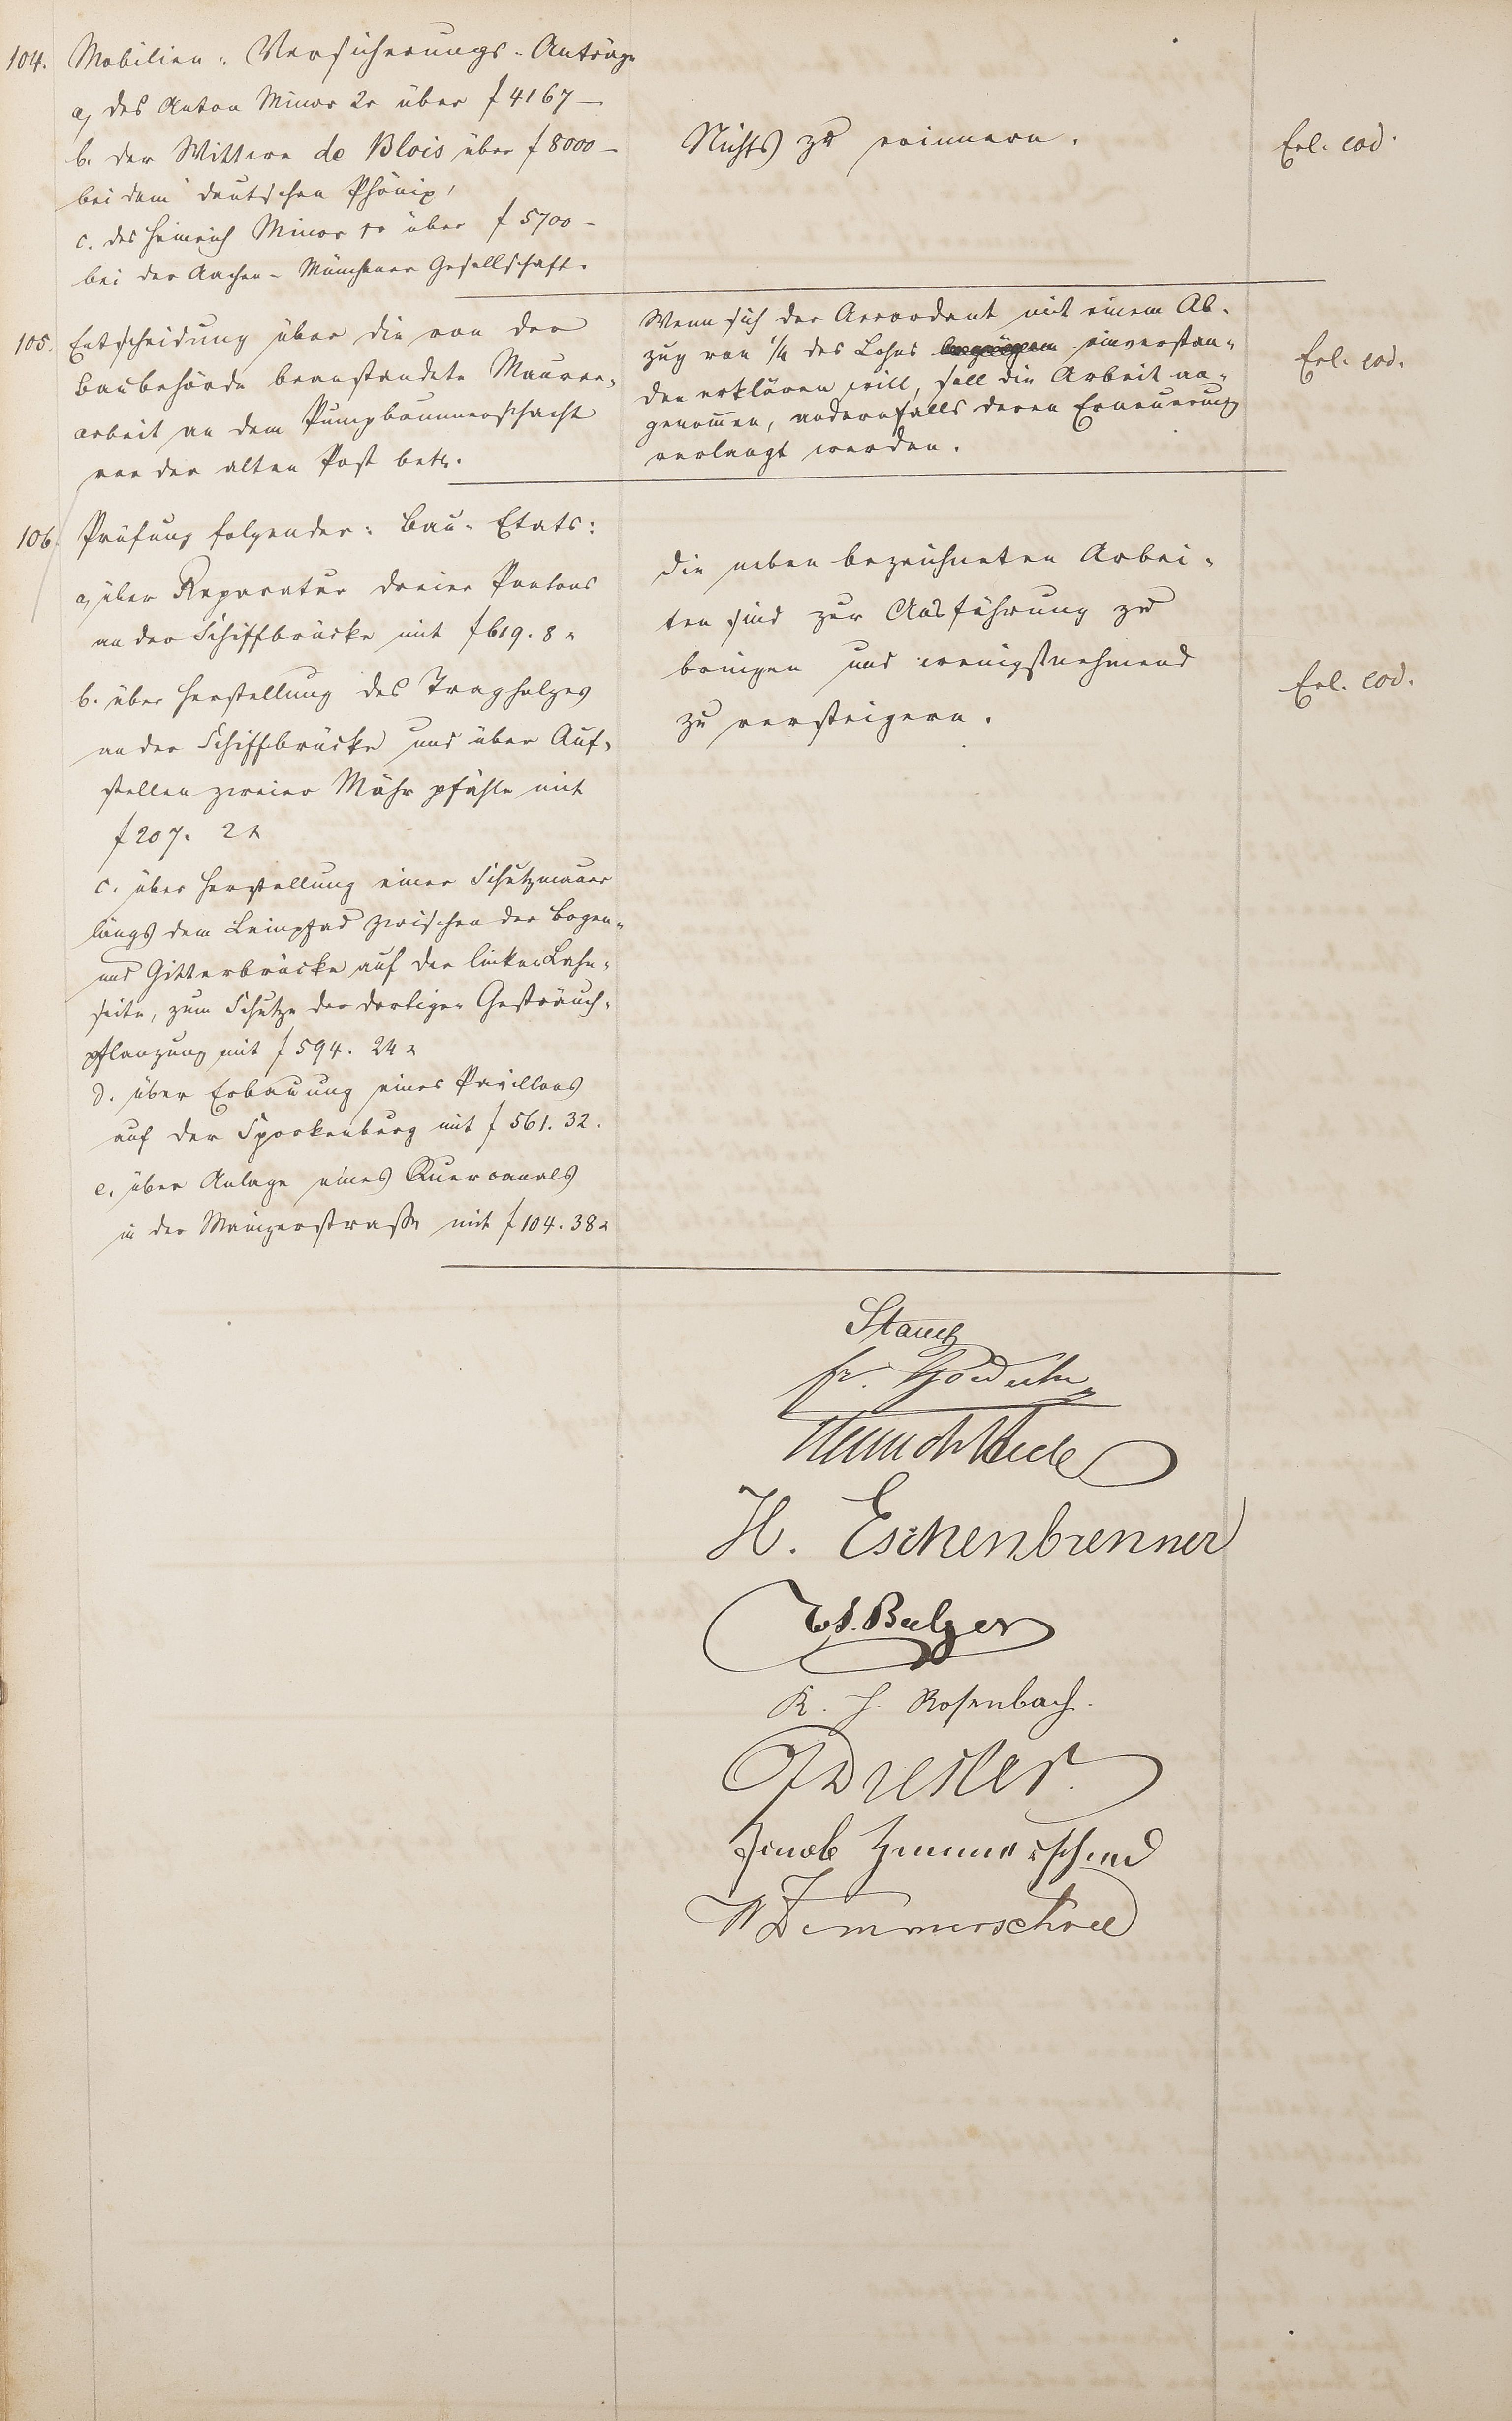 104. Mobilien-Versicherungs-Anträge
a, des Anton Minor 2r über f 4167 —
b. der Wittwe de Blois über f 8000 —
bei dem deutschen Phönix,
c. des Heinrich Minor 1r über f 5700 —
bei der Aachen-Münchener Gesellschaft.
Nichts zu erinnern.
Erl. eod.
105. Entscheidung über die von der
Baubehörde beanstandete Maurer-
arbeit an dem Pumpbrunnenschacht
vor der alten Post betr.
Wenn sich der Accordant mit einem Ab-
zug von 1/4 des Lohns einverstan-
den erklären will, soll die Arbeit an-
genommen, andernfalls deren Erneuerung
verlangt werden.
Erl. eod.
106. Prüfung folgender Bau-Etats:
a, über Reparatur dreier Pontons
an der Schiffbrücke mit f 619. 8 x
b. über Herstellung des Tragholzes
an der Schiffbrücke und über Auf-
stellen zweier Mährpfähle mit
f 207. 2 x
c. über Herstellung einer Schutzmauer
längs dem Leinpfad zwischen der Bogen-
und Gitterbrücke auf der linken Lahn-
seite, zum Schutze der dortigen Gesträuch-
pflanzung mit f 594. 24 x
d. über Erbauung eines Pavillons
auf der Sporkenburg mit f 561. 32.
e. über Anlage eines Quercanals
in der Mainzerstraße mit f 104. 38 x
Die neben bezeichneten Arbei-
ten sind zur Ausführung zu
bringen und wenigstnehmend
zu versteigern.
Erl. eod.
Stauch
fr.
H. Eschenbrenner
Ws. Balzer
K. H. Rosenbach.
Drexler.
Jacob Zimmerschied
W Zimmerschied